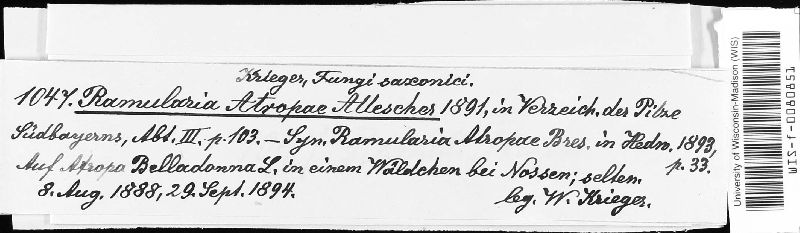 Krieger, Fungi saxonici.
1047. Ramularia Atropae Allescher 1891, in Verzeich. der Pilze
Südbayerns, Abt. III. p. 103. — Syn. Ramularia Atropae Bres. in Hedw. 1893,
p. 33.
Auf Atropa Belladonna L. in einem Wäldchen bei Nossen; selten.
8. Aug. 1888, 29. Sept. 1894.
leg. W. Krieger.
University of Wisconsin-Madison (WIS)
WIS-f-0080851